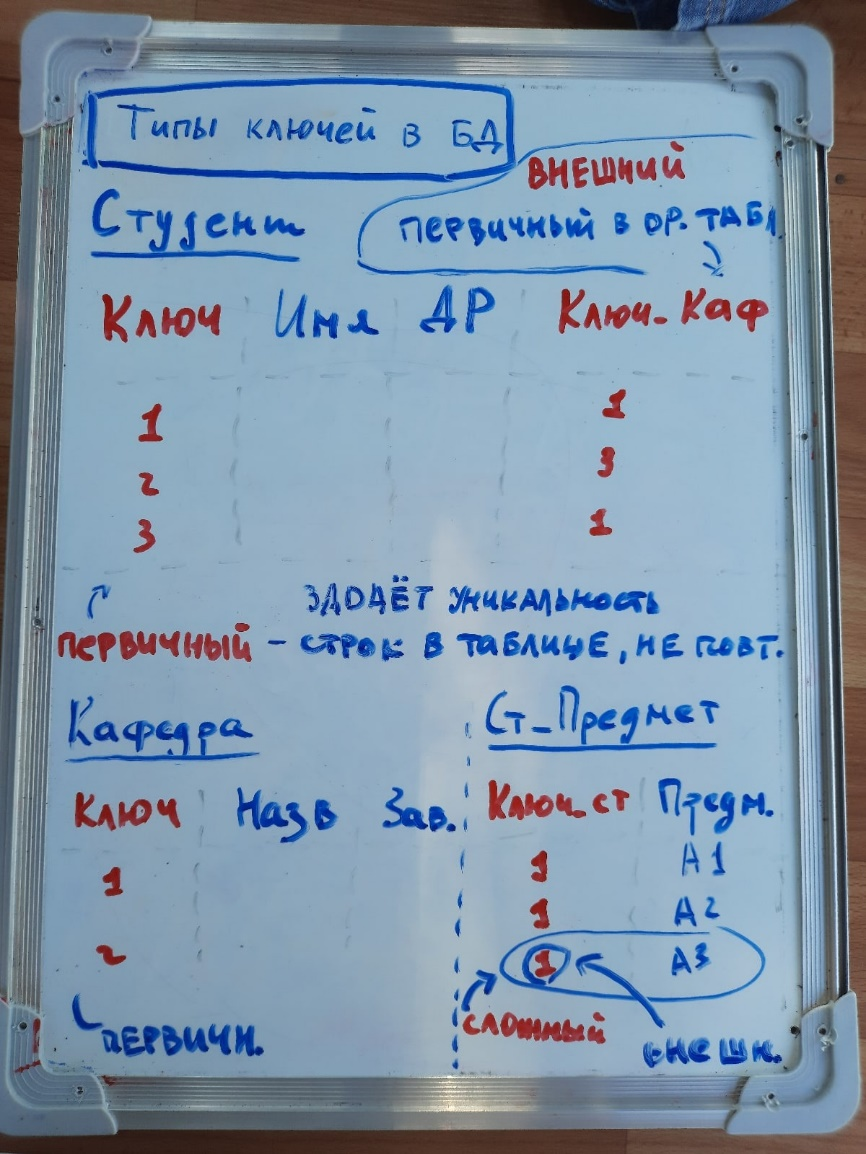 Типы ключей в БД
ВНЕШНИЙ
ПЕРВИЧНЫЙ В ДР. ТАБЛ
Студент
Ключ Имя ДР Ключ_Каф
1 1
2 3
3 1
ЗАДАЁТ УНИКАЛЬНОСТЬ
ПЕРВИЧНЫЙ - СТРОК В ТАБЛИЦЕ, НЕ ПОВТ.
Кафедра
Ключ Назв Зав.
1
2
ПЕРВИЧН.
Ст_Предмет
Ключ_ст Предм.
1 А1
1 А2
1 А3
СЛОЖНЫЙ
ВНЕШН.